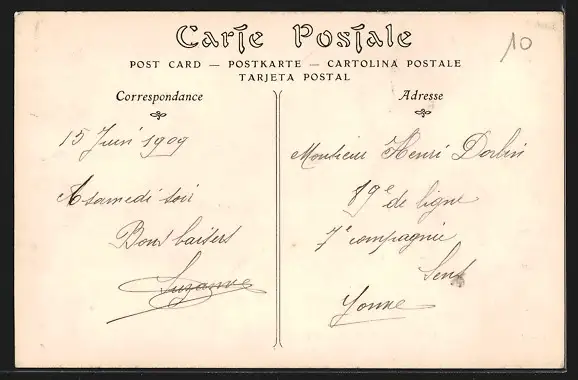 Carte Postale
10
POST CARD — POSTKARTE — CARTOLINA POSTALE
TARJETA POSTAL
Correspondance
15 Juin 1909
A samedi soir
Bons baisers
Suzanne
Adresse
Monsieur Henri Dorlin
89e de ligne
7e compagnie
Sens
Yonne